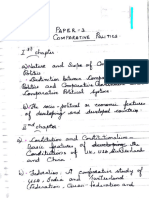 PAPER-2
COMPARATIVE POLITICS
Ist chapter
a) Nature and Scope of Comp
Politics
- Distinction between Compa
Politics and Comparative Governm
Comparative Political System
b) The socio-political or economic features
of developing and developed countries
2nd chapter
a) - Constitution and Constitutionalism -
features of developing the
Constitutions of U.K. USA Switzerland
and China
b) - Federalism: A comparative study of
USA, India and Switzerland
(Federation, Quasi-Federation and